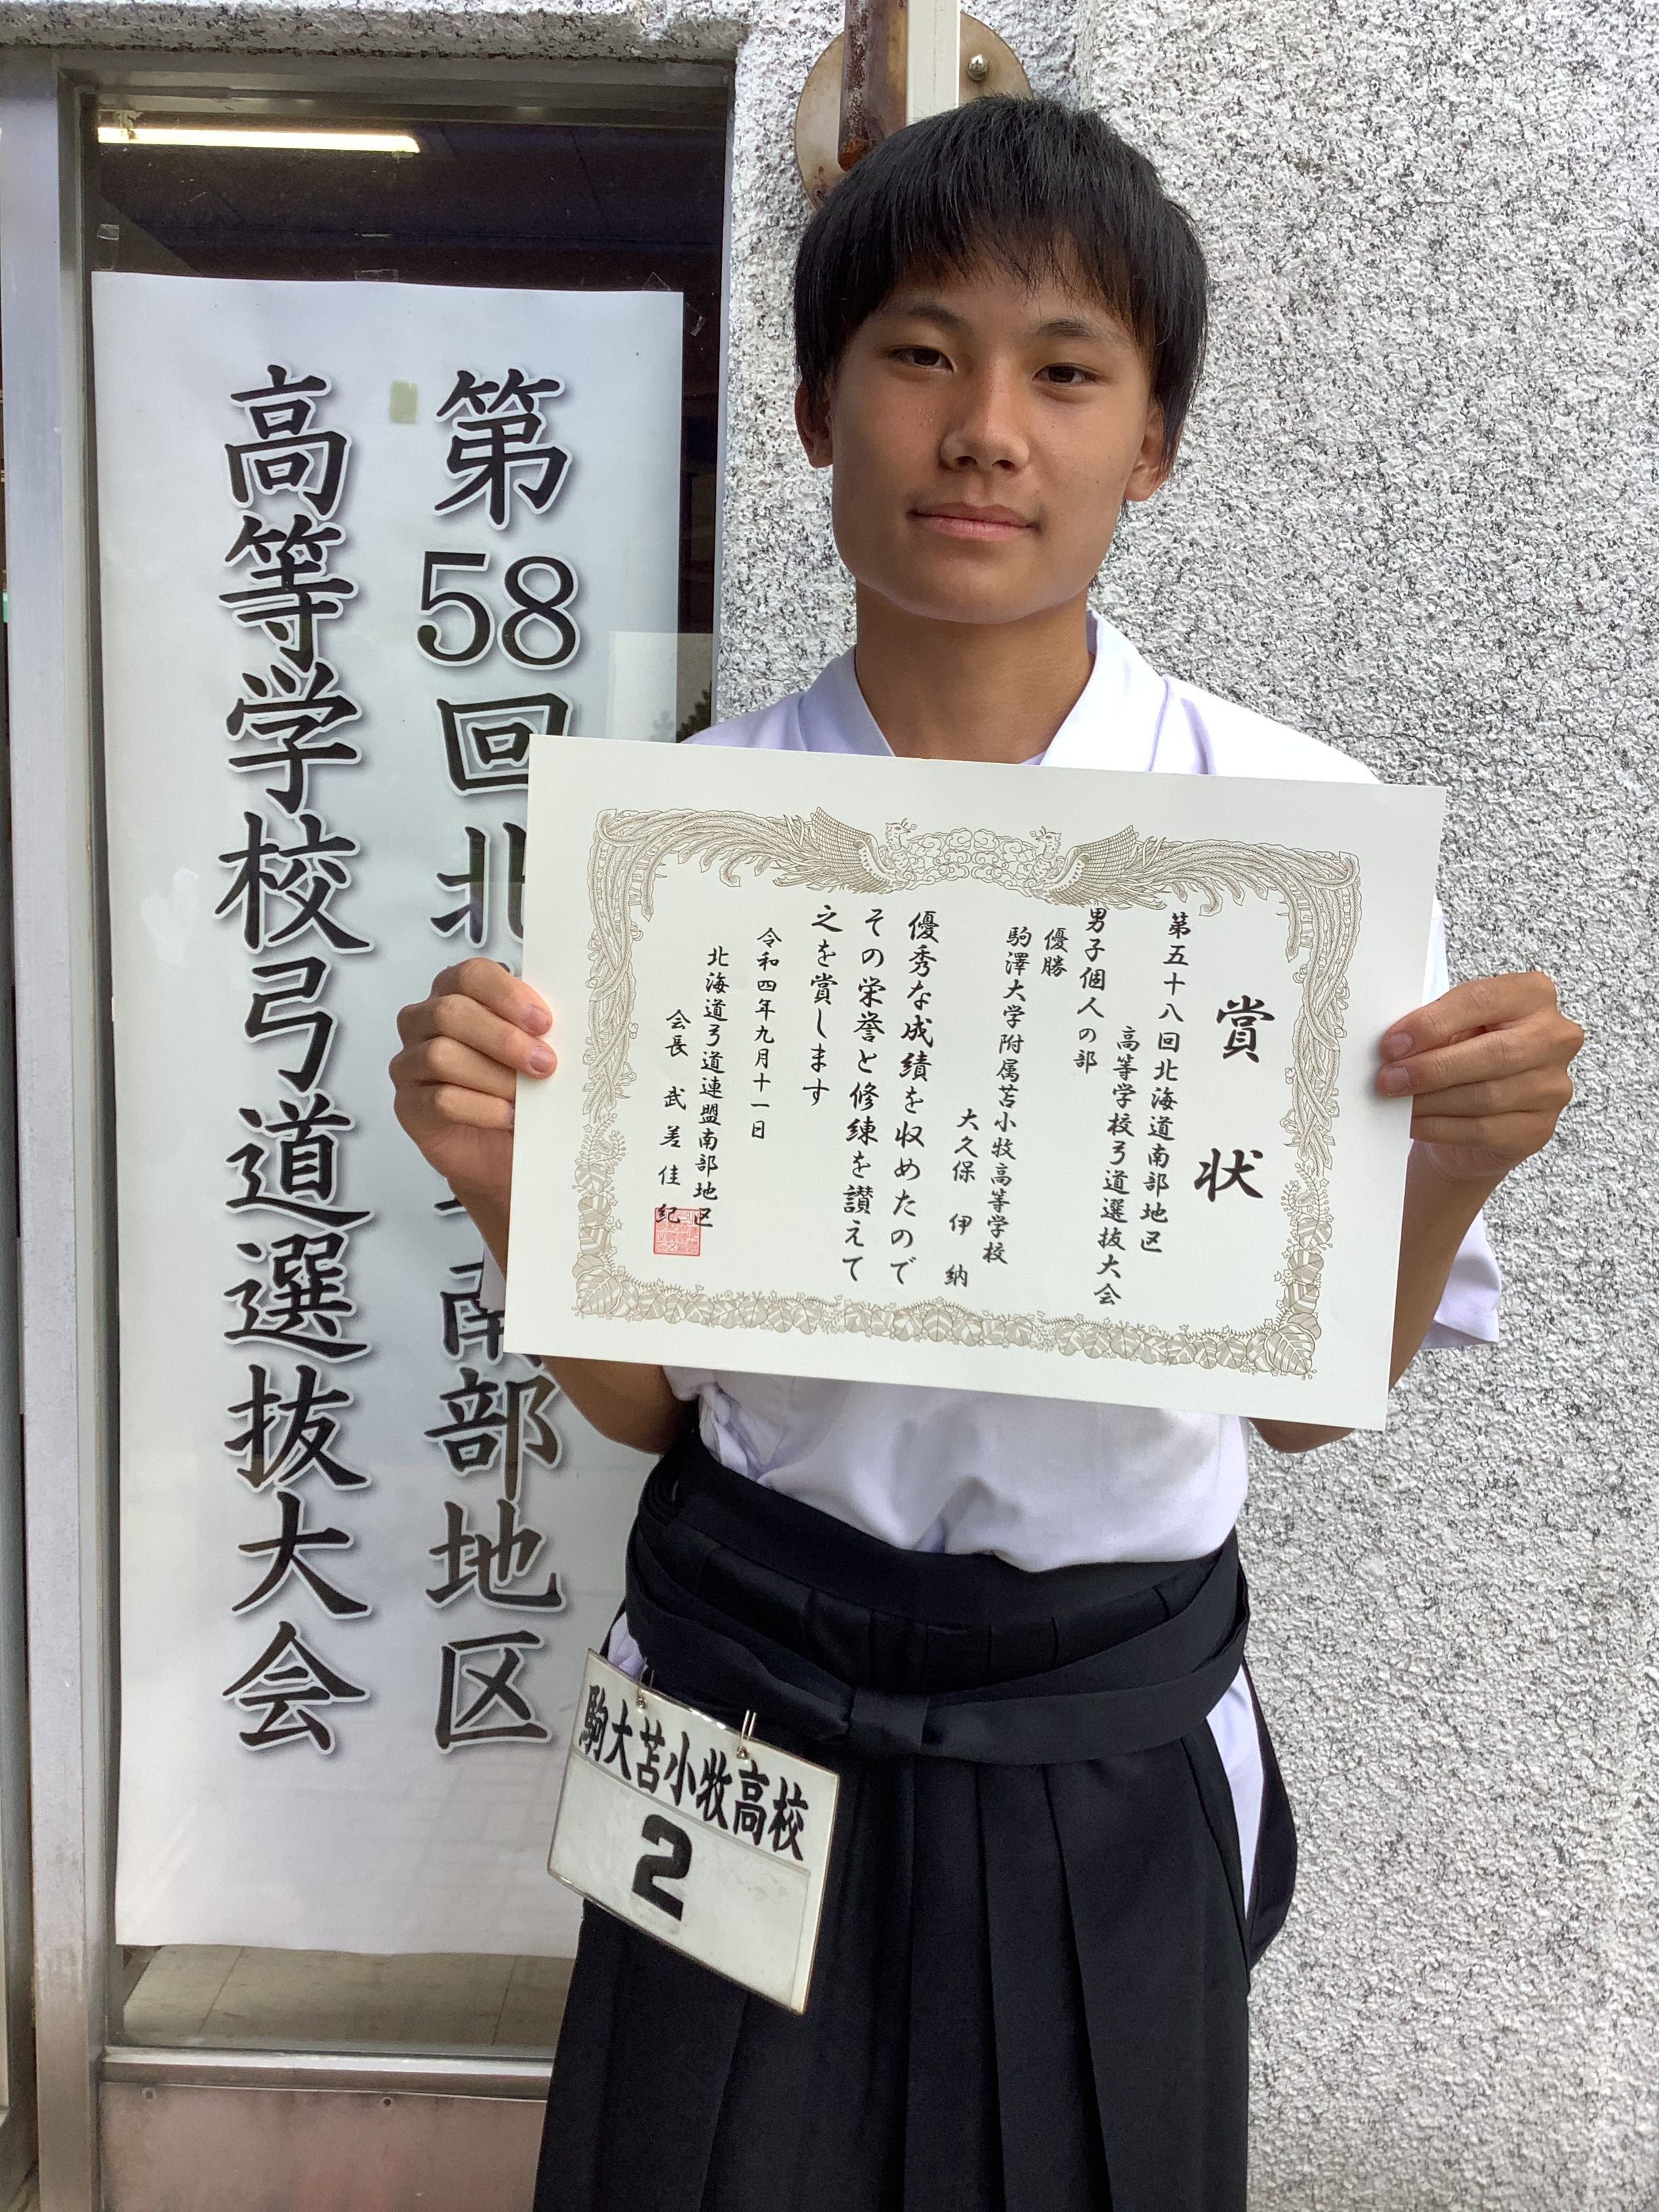 第58回北
南部地区
高等学校弓道選抜大会
賞状
第五十八回北海道南部地区
高等学校弓道選抜大会
男子個人の部
優勝
駒澤大学附属苫小牧高等学校
大久保 伊 納
優秀な成績を収めたので
その栄誉と修練を讃えて
之を賞します
令和四年九月十一日
北海道弓道連盟南部地区
会長 武差佳紀
駒大苫小牧高校
2